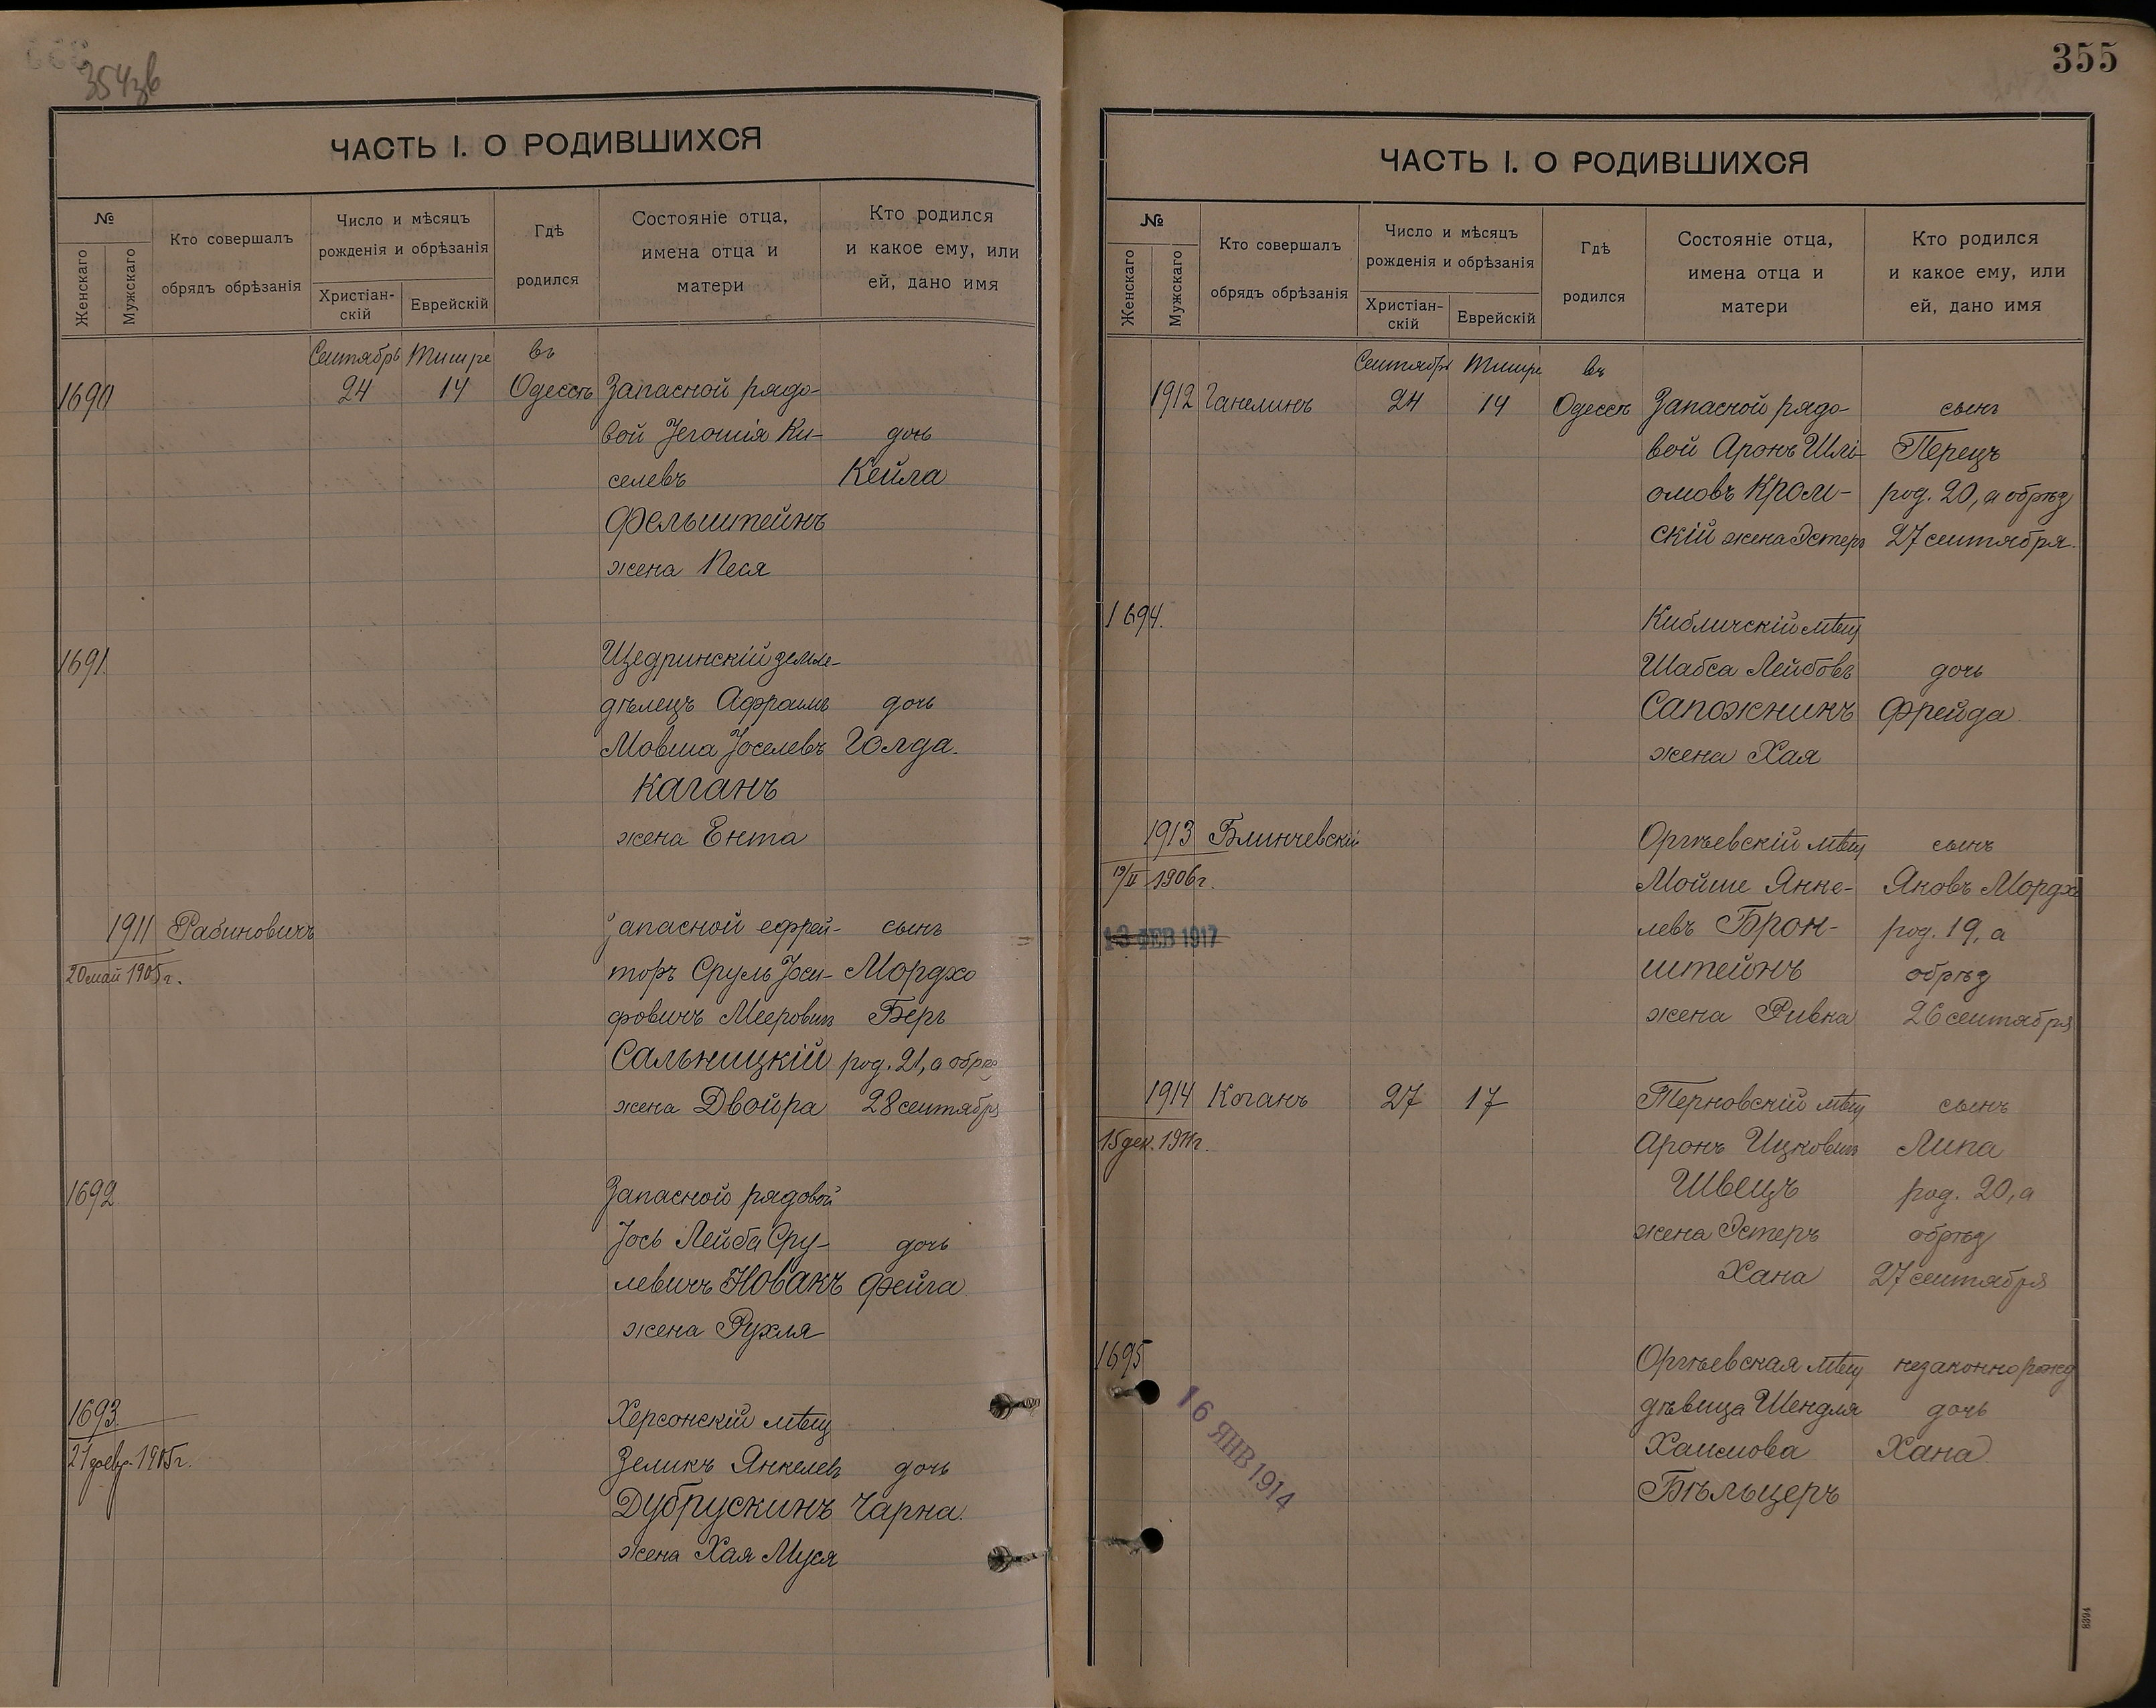 354зв
ЧАСТЬ I. О РОДИВШИХСЯ
№
Женскаго
Мужскаго
Кто совершалъ
обрядъ обрѣзанія
Число и мѣсяцъ
рожденія и обрѣзанія
Христіан-
скій
Еврейскій
Гдѣ
родился
Состояніе отца,
имена отца и
матери
Кто родился
и какое ему, или
ей, дано имя
Сентябрь Тишре въ
1690 24 14 Одессѣ Запасной рядо-
вой Іегошія Ки- дочь
селевъ Кейла
Фельштейнъ
жена Песя
1691. Щедринскій земле-
дѣлецъ Афраимъ дочь
Мовша Іоселевъ Голда.
Каганъ
жена Ента
1911 Рабиновичъ Запасной ефрей- сынъ
20 май 1905 г. торъ Сруль Іоси- Мордхо
фовичъ Мееровичъ Беръ
Сальницкій род. 21, а обрѣз
жена Двойра 28 сентября
1692 Запасной рядовой
Іось Лейба Сру- дочь
левичъ Новакъ Фейга.
жена Рухля
1693. Херсонскій мѣщ
21 февр. 1905 г. Зеликъ Янкелевъ дочь
Дубрускинъ Чарна.
жена Хая Муся
355
ЧАСТЬ I. О РОДИВШИХСЯ
№
Женскаго
Мужскаго
Кто совершалъ
обрядъ обрѣзанія
Число и мѣсяцъ
рожденія и обрѣзанія
Христіан-
скій
Еврейскій
Гдѣ
родился
Состояніе отца,
имена отца и
матери
Кто родился
и какое ему, или
ей, дано имя
Сентябрь Тишре въ
1912 Ганелинъ 24 14 Одессѣ Запасной рядо- сынъ
вой Аронъ Шлі- Перецъ
омовъ Кром- род. 20, а обрѣз
скій жена Эстеръ 27 сентября.
1694. Кибличскій мѣщ
Шабса Лейбовъ дочь
Сапожникъ Фрейда.
жена Хая
1913 Блинчевскій Оргѣевскій мѣщ сынъ
19/II 1906 г. Мойше Янке- Яковъ Мордхо
13 ФЕВ 1917 левъ Брон- род. 19, а
штейнъ обрѣз
жена Ривка 26 сентября
1914 Коганъ 27 17 Терновскій мѣщ сынъ
15 дек. 1911 г. Аронъ Ицковичъ Липа
Швецъ род. 20, а
жена Эстеръ обрѣз
Хана 27 сентября
1695 Оргѣевская мѣщ незаконно рожд
дѣвица Шендля дочь
16 ЯНВ 1914 Хаимова Хана.
Бѣльцеръ
8394